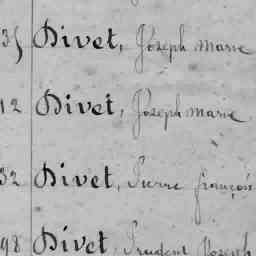 35 Divet, Joseph Marie
12 Divet, Joseph Marie
32 Divet, Pierre François
98 Divet, Prudent Joseph